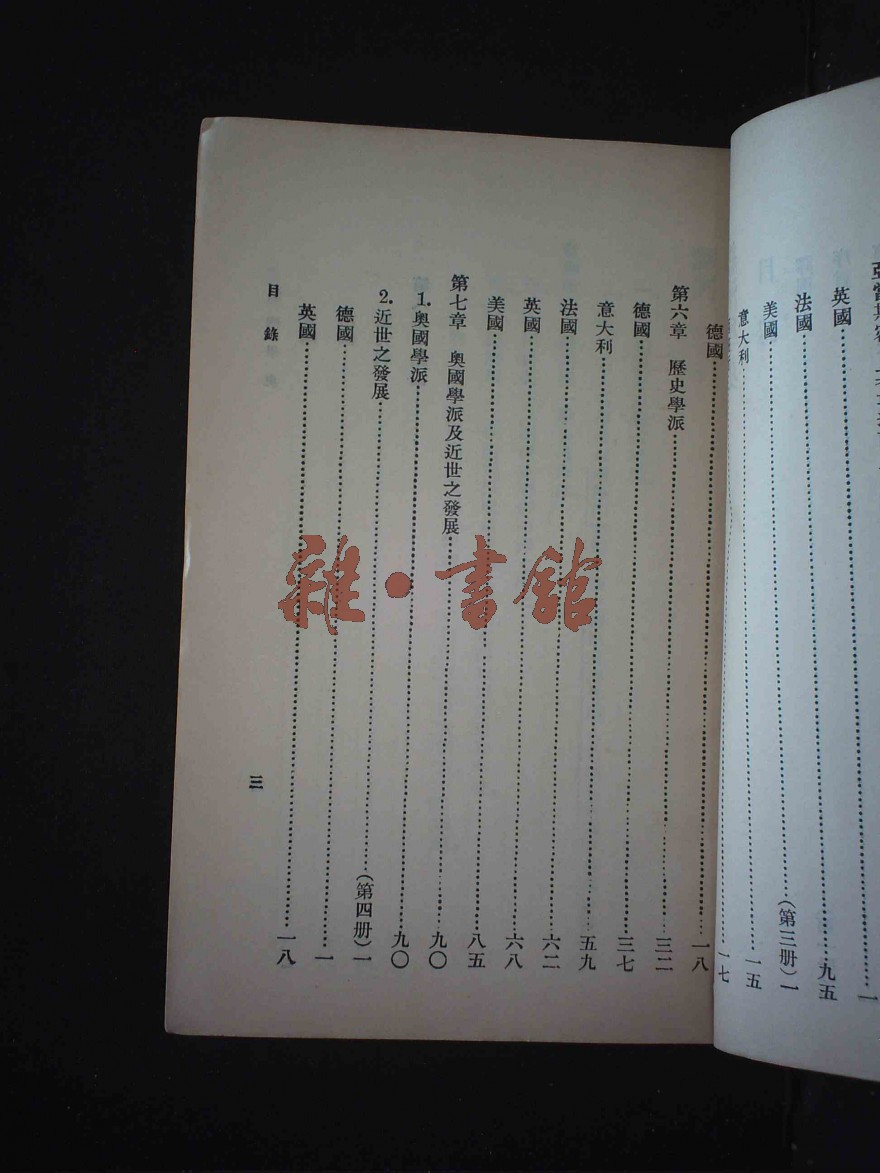 英國……九五
法國……(第三册)一
美國……一五
意大利……一七
德國……一八
第六章 歷史學派……三二
德國……三七
意大利……五九
法國……六二
英國……六八
美國……八五
第七章 奧國學派及近世之發展……九〇
1.奧國學派……九〇
2.近世之發展……(第四册)一
德國……一
英國……一八
目錄
三
雜·書館